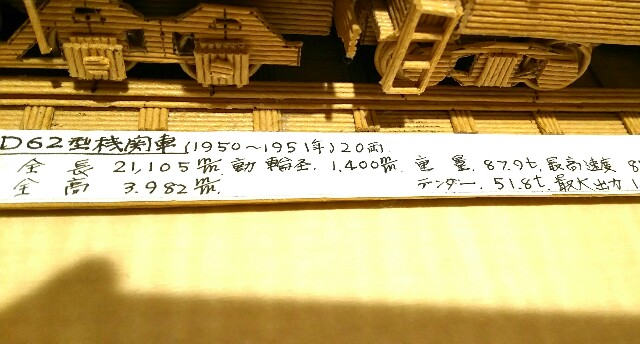 D62型機関車(1950〜1951年)20両
全長 21,105㎜ 動輪径.1.400㎜.重量.87.9t.最高速度 8
全高 3.982㎜. テンダー.51.8t.最大出力 1